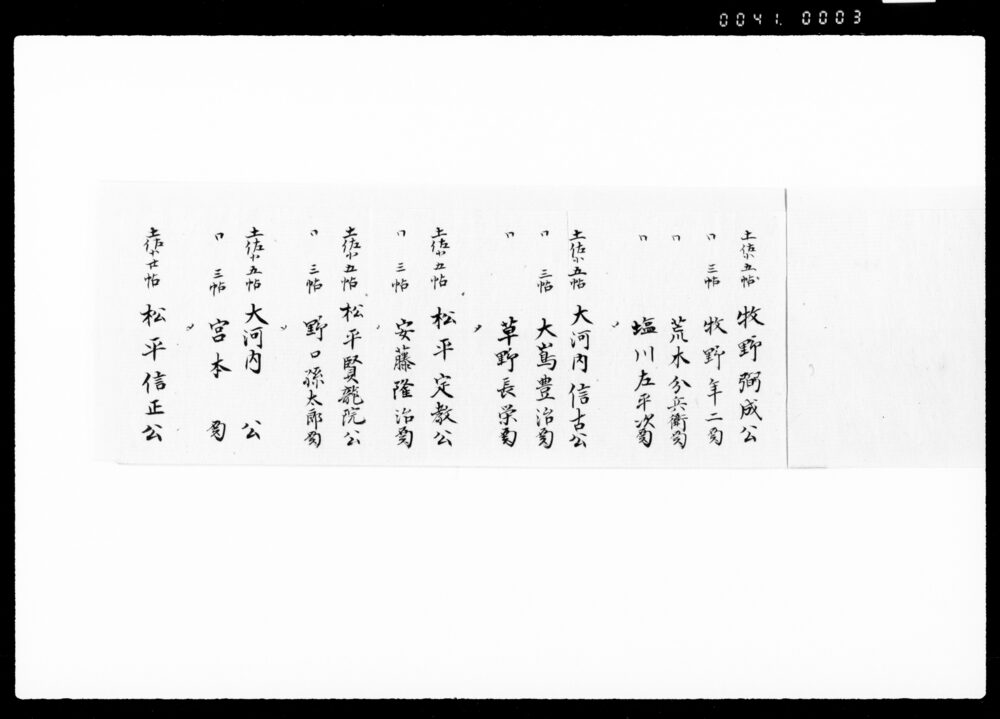 0041. 0003
土佐小五帖 牧野弼成公
〃 三帖 牧野年二殿
〃 荒木分兵衛殿
〃 塩川左平次殿
土佐小五帖 大河内信古公
〃 三帖 大嶌豊治殿
〃 草野長栄殿
土佐小五帖 松平定教公
〃 三帖 安藤隆治殿
土佐小五帖 松平賢龍院公
〃 三帖 野口孫太郎殿
土佐小五帖 大河内 公
〃 三帖 宮本 殿
土佐小廿帖 松平信正公